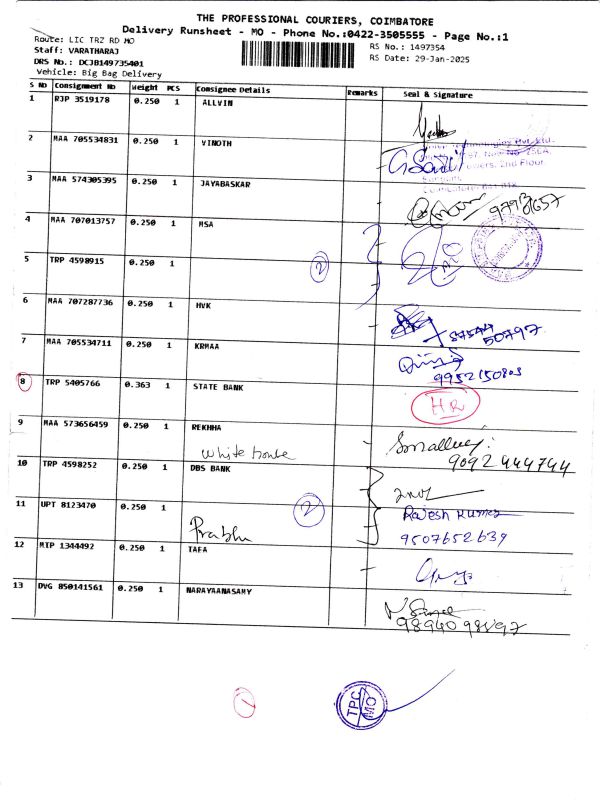 THE PROFESSIONAL COURIERS, COIMBATORE
Delivery Runsheet - MO - Phone No.:0422-3505555 - Page No.:1
Route: LIC TRZ RD MO
RS No.: 1497354
Staff: VARATHARAJ
RS Date: 29-Jan-2025
DRS No.: DCJB149735401
Vehicle: Big Bag Delivery
S No Consignment No Weight PCS Consignee Details Remarks Seal & Signature
1 RJP 3519178 0.250 1 ALLVIN
2 MAA 705534831 0.250 1 VINOTH
3 MAA 574305395 0.250 1 JAYABASKAR
4 MAA 707013757 0.250 1 MSA
5 TRP 4598915 0.250 1 2
6 MAA 707287736 0.250 1 HVK
7 MAA 705534711 0.250 1 KRMAA
9952150803
8 TRP 5405766 0.363 1 STATE BANK HR
9 MAA 573656459 0.250 1 REKHHA
White house
9092 444744
10 TRP 4598252 0.250 1 DBS BANK
11 UPT 8123470 0.250 1 2 Rajesh Kumar
Prabhu 9507652639
12 MTP 1344492 0.250 1 TAFA
13 DVG 850141561 0.250 1 NARAYAANASAMY
1
TPC
MO